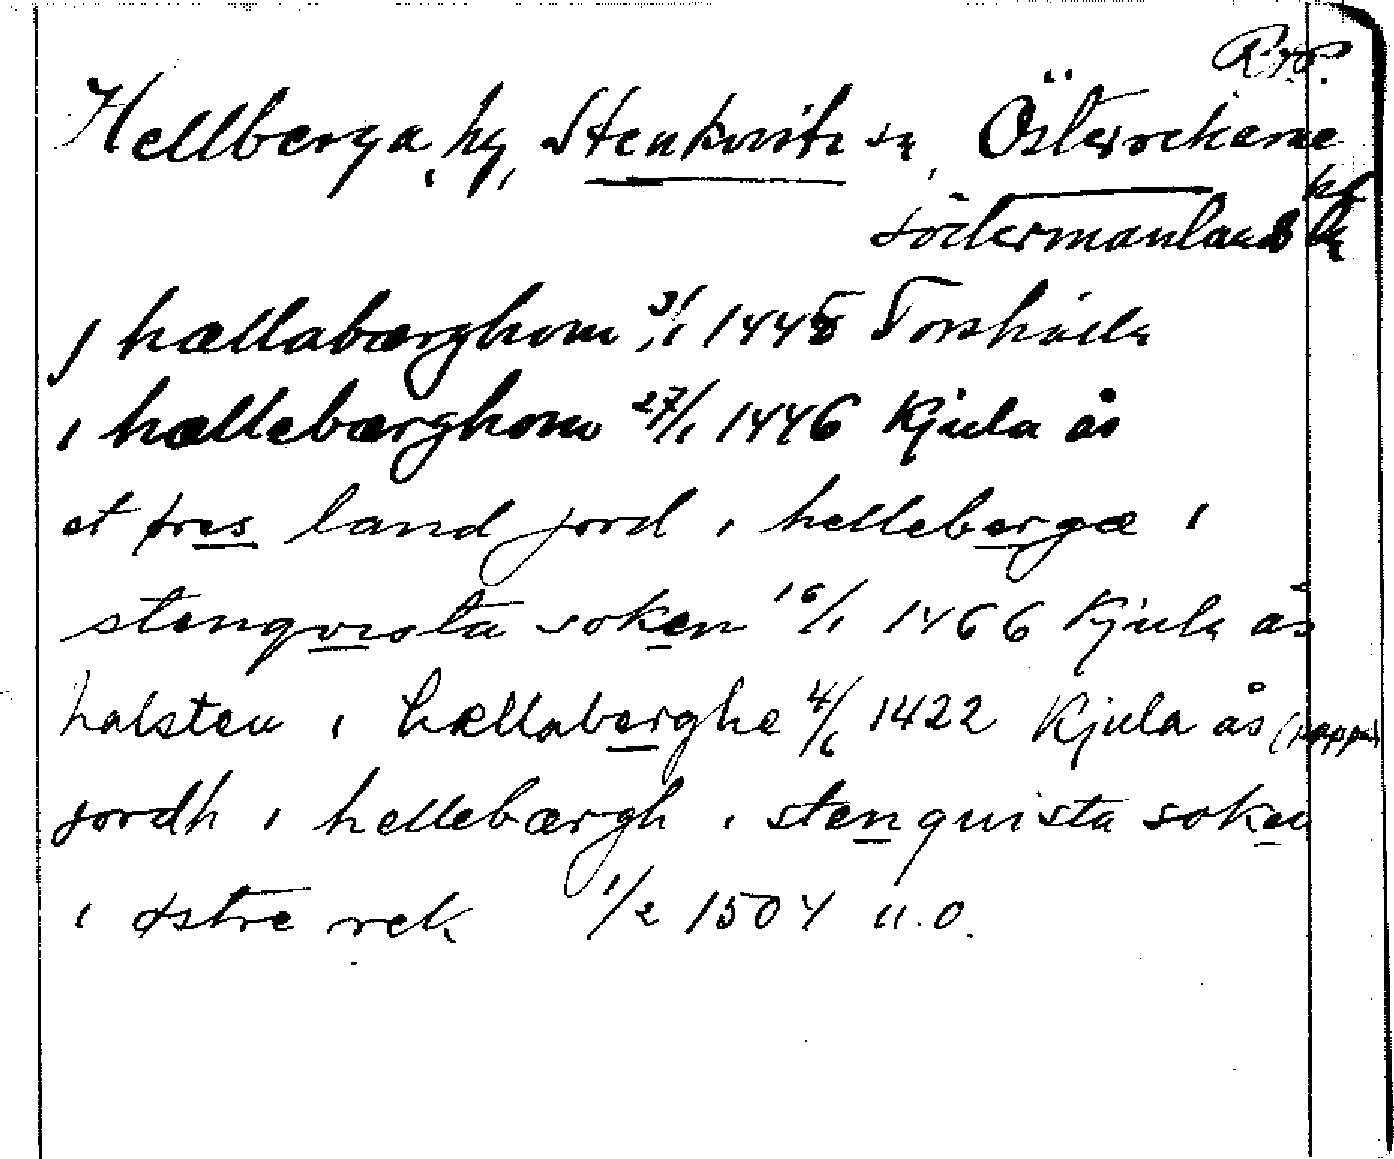 RAP.
Hellberga, hg, Stenkvista sn, Österrekarne
hd
Södermanlands län
J hællabærghom 3/1 1445 Torshälla
i hællebærghom 27/1 1446 Kjula ås
et øres land jord i hellebergæ i
stenqvista soken 16/1 1466 Kjula ås
halsten i hællaberghe 4/6 1422 Kjula ås (papper)
jordh i hellebærgh i stenquista soken
i østre rek 1/2 1504 u.o.